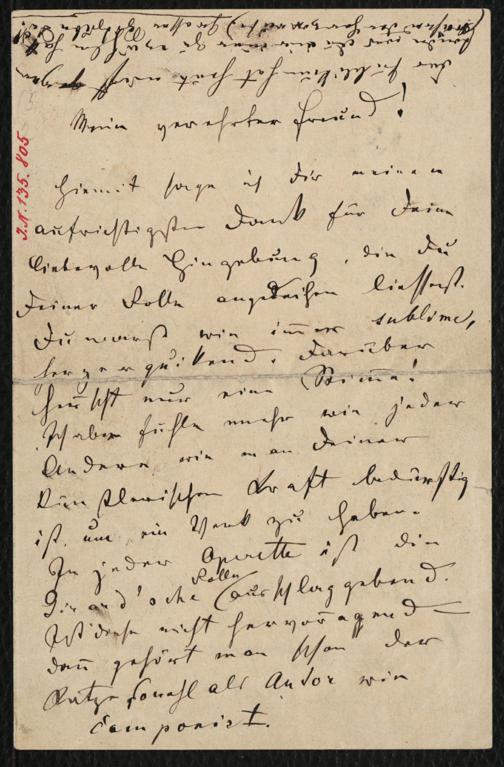 Mein verehrter Freund!
Hiemit sage ich Dir meinen
aufrichtigsten Dank für Deine
liebevolle Hingebung, die Du
Deiner Rolle angedeihen liessest.
Du warst wie immer sublime,
herzerquikend. Darüber
herrscht nur eine Stimme!
Ich aber fühle mehr wie jeder
Andere wie man Deiner
künstlerischen Kraft bedürftig
ist, um ein Werk zu heben.
In jeder Operette ist die
Girardi'sche Rolle ausschlaggebend.
Ist diese nicht hervorragend
dann gehört man schon der
Katze sowohl als Autor wie
Componist.
J.N. 135.805